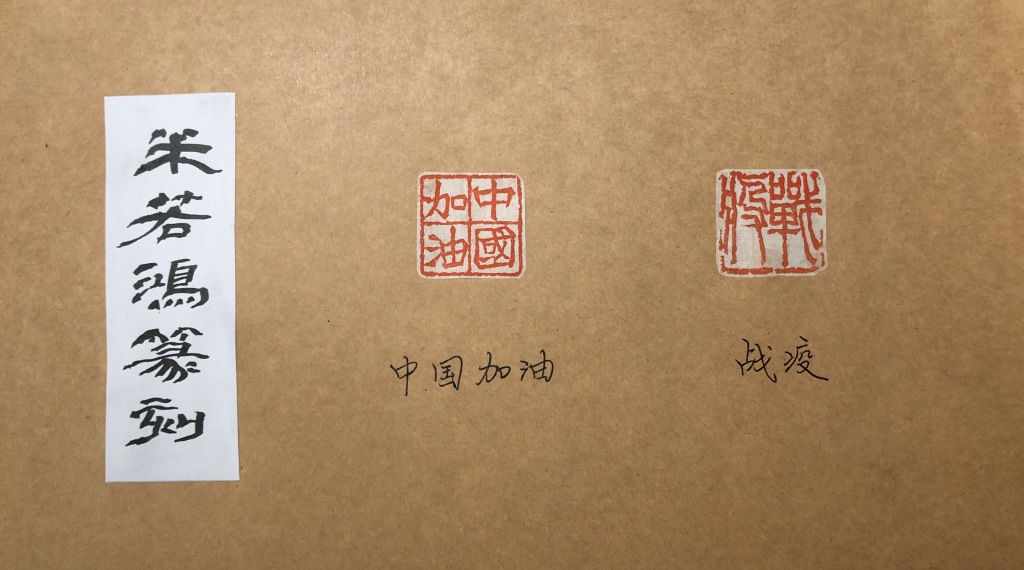 朱若鴻篆刻
中國加油
戰疫
中国加油
战疫